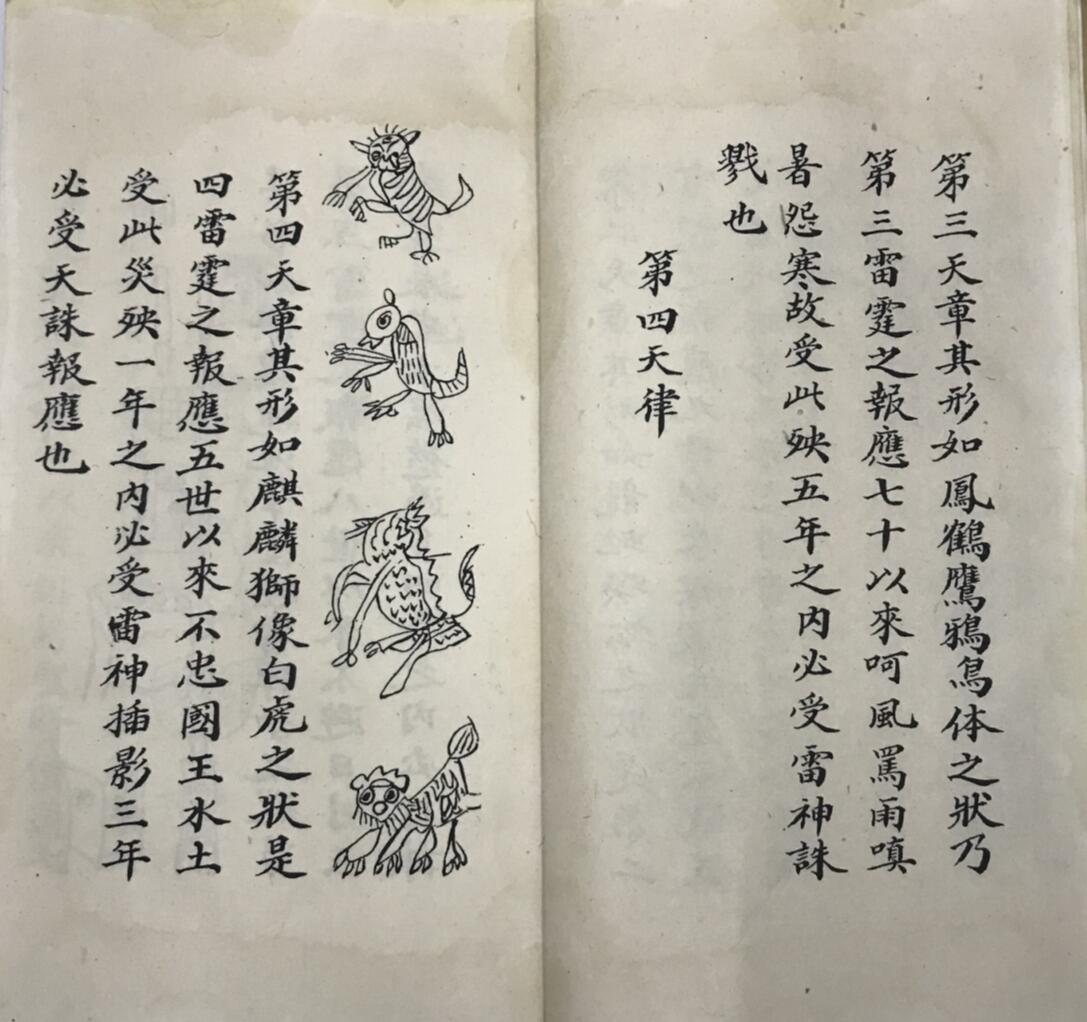 第三天章其形如鳳鶴鷹鴉鳥体之狀乃
第三雷霆之報應七十以來呵風罵雨嗔
暑怨寒故受此殃五年之內必受雷神誅
戮也
第四天律
第四天章其形如麒麟獅像白虎之狀是
四雷霆之報應五世以來不忠國王水土
受此災殃一年之內必受雷神插影三年
必受天誅報應也